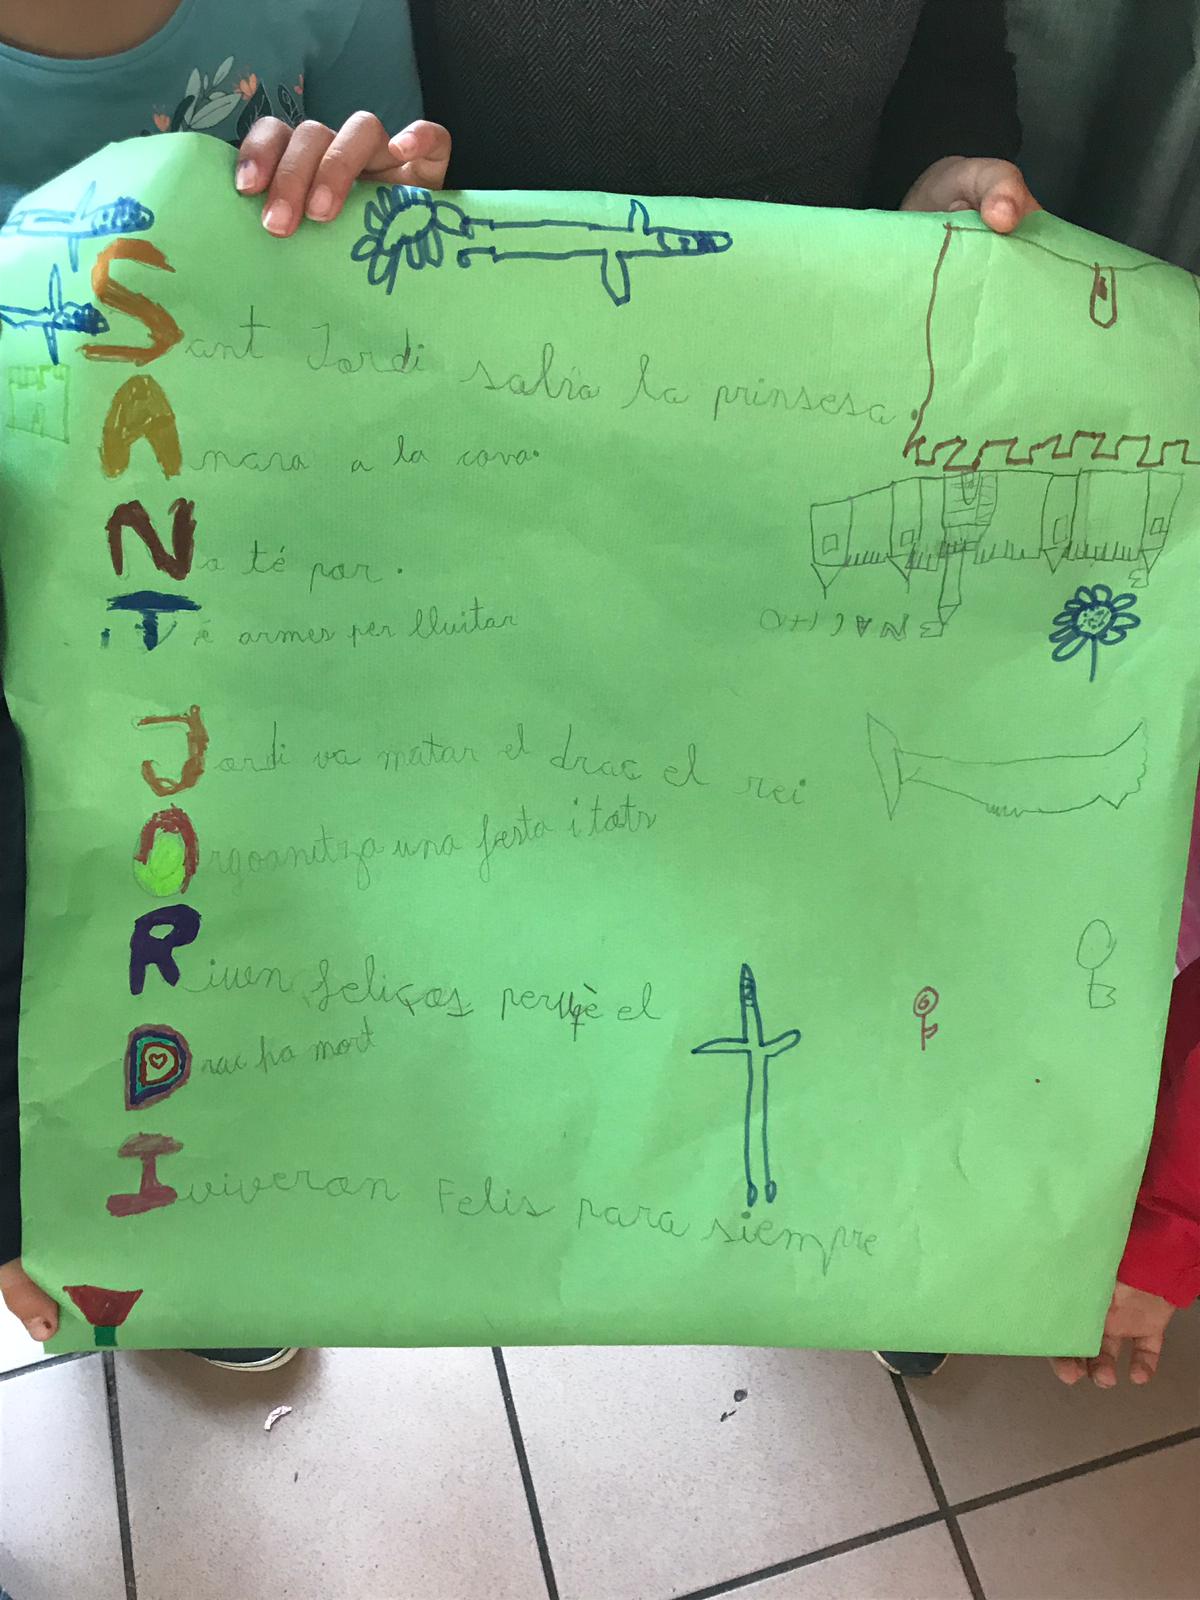 Sant Jordi salva la prinsesa.
Anara a la cova.
No té por.
Té armes per lluitar
Jordi va matar el drac el rei
Orgoanitza una festa i tots
Riuen feliços perquè el
Drac ha mort
I viveran Felis para siempre